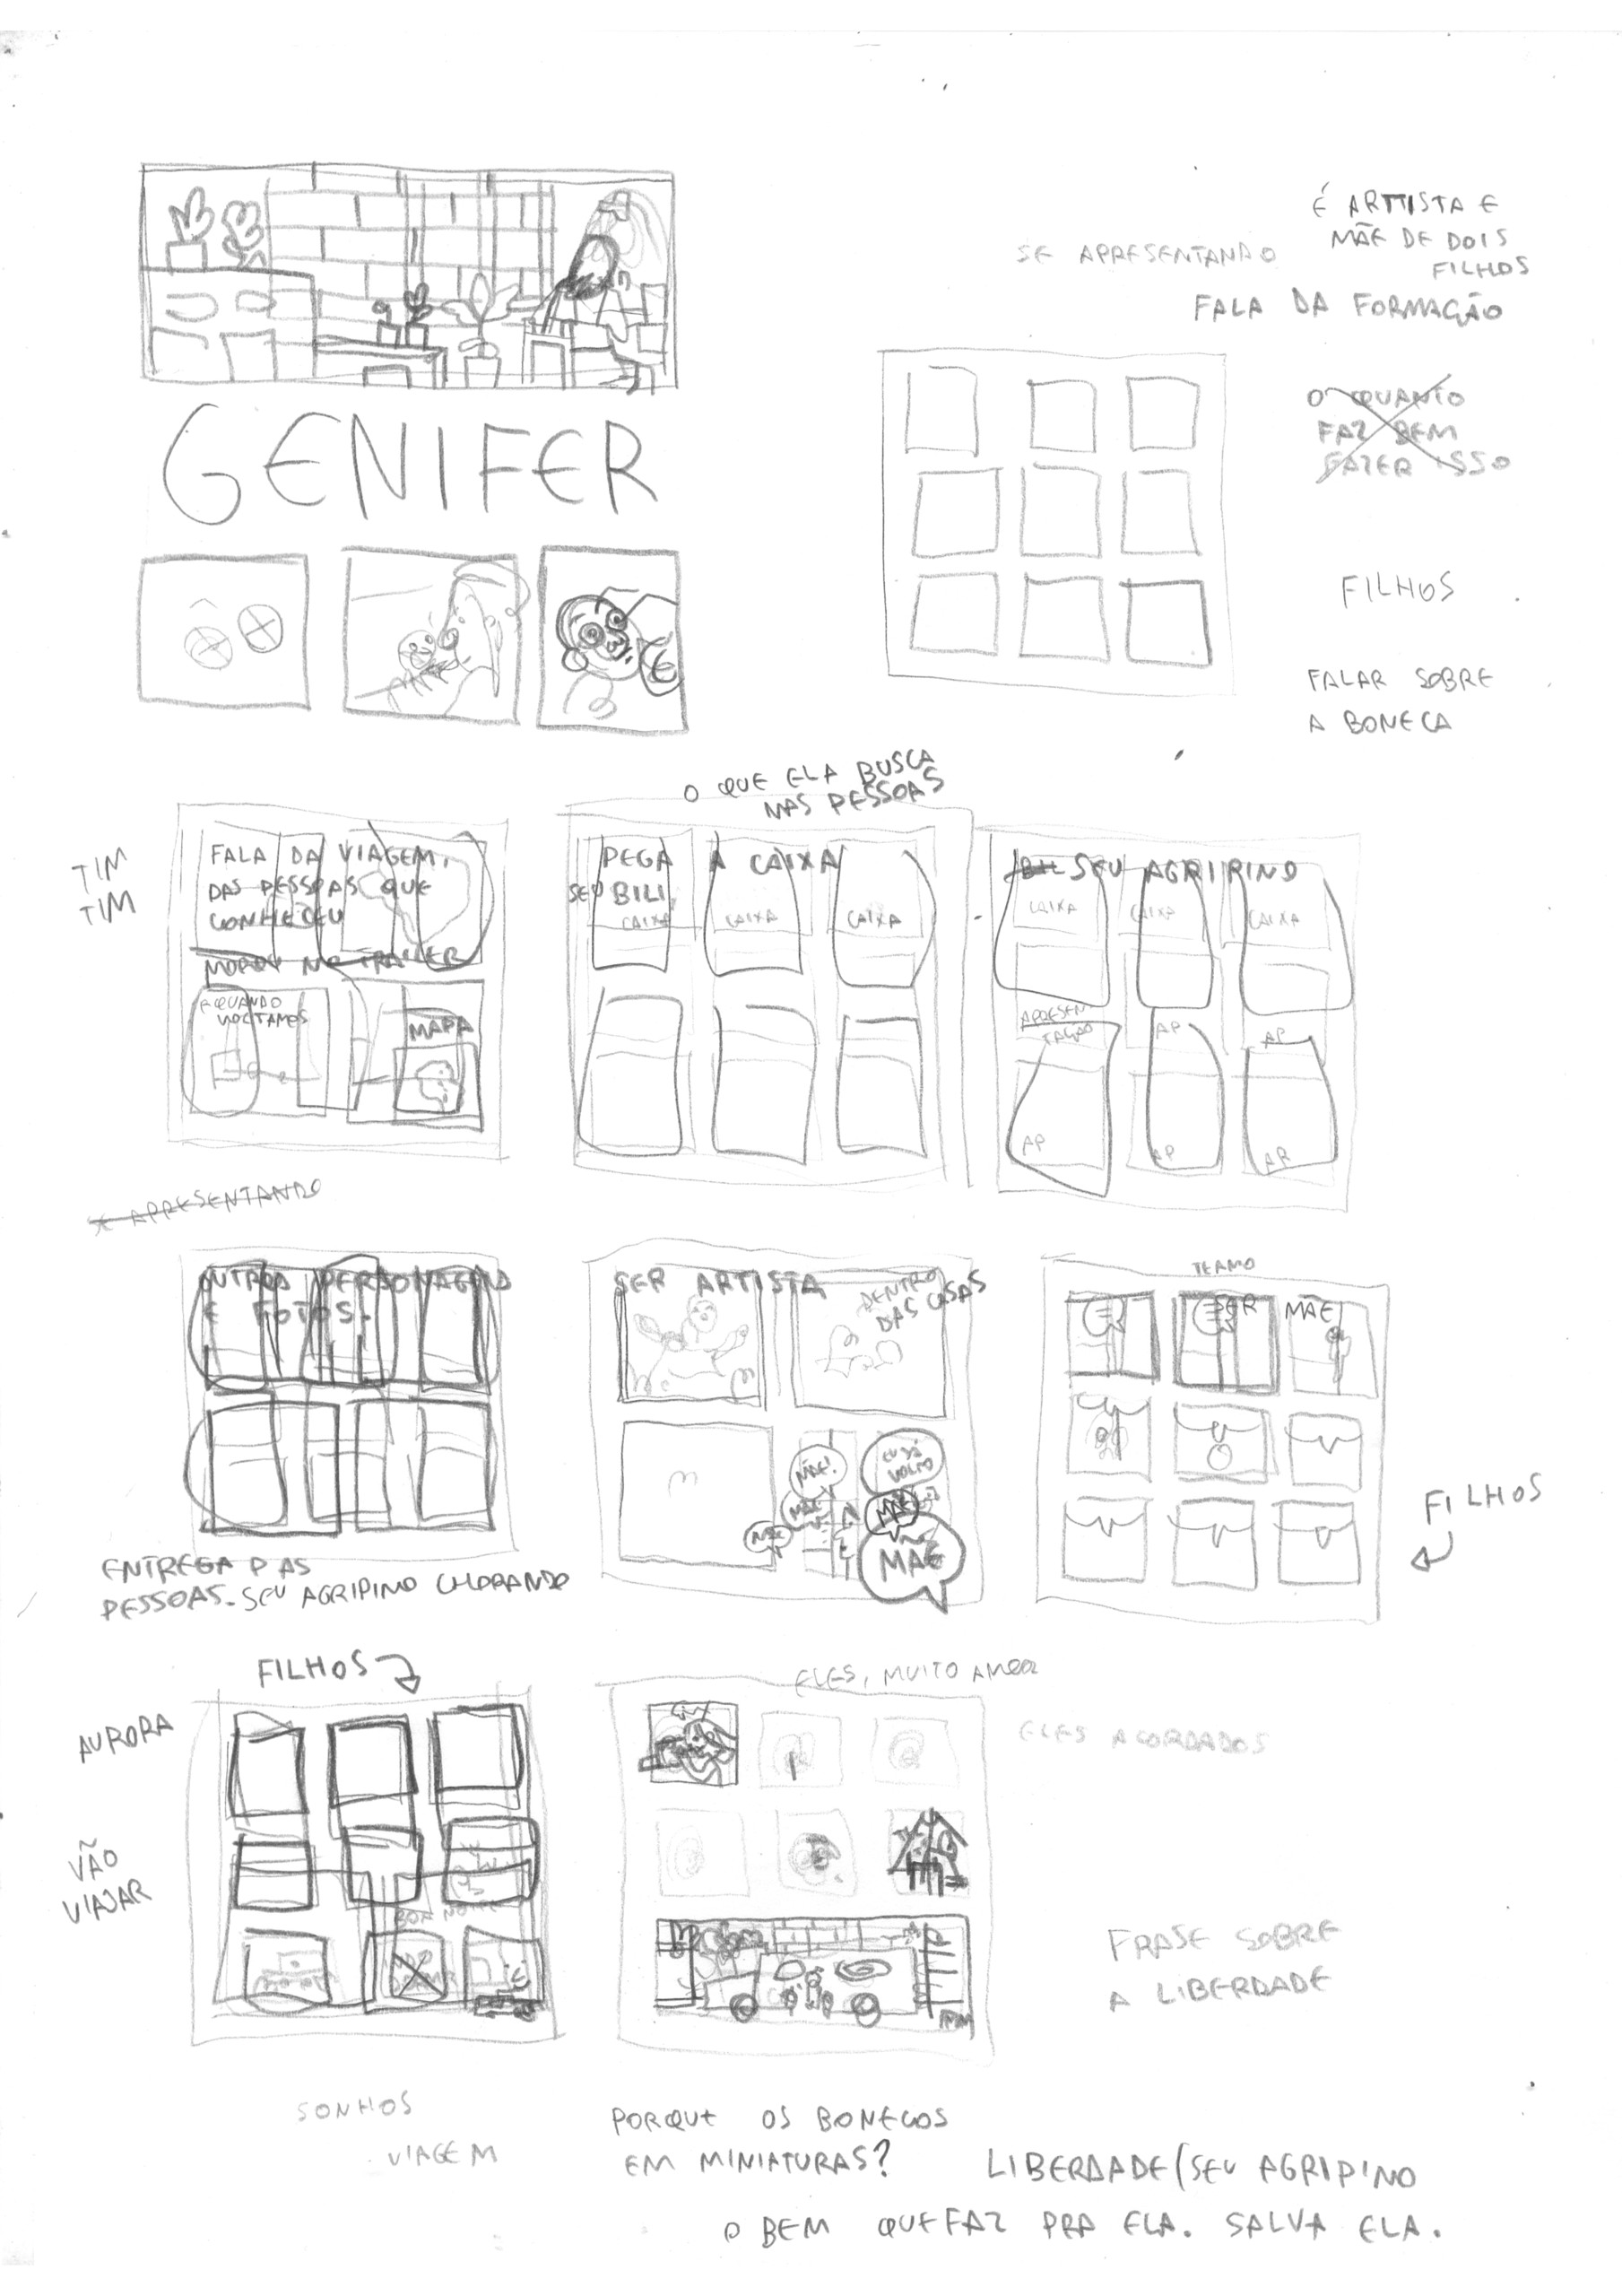 GENIFER
SE APRESENTANDO
É ARTTISTA E
MÃE DE DOIS
FILHOS
FALA DA FORMAÇÃO
O QUANTO
FAZ BEM
FAZER ISSO
FILHOS
FALAR SOBRE
A BONECA
TIM
TIM
FALA DA VIAGEM,
DAS PESSOAS QUE
CONHECEU
MOROU NO TRAILER
E QUANDO
VOLTAMOS
MAPA
O QUE ELA BUSCA
NAS PESSOAS
PEGA A CAIXA
SEU BILI,
CAIXA CAIXA CAIXA
SEU AGRIPINO
CAIXA CAIXA CAIXA
APRESEN
TAÇÃO
AP AP
AP AP AP
SE APRESENTANDO
OUTROS PERSONAGENS
E FOTOS.
ENTREGA P AS
PESSOAS. SEU AGRIPINO CHORANDO
SER ARTISTA
DENTRO
DAS CASAS
MÃE!
EU JÁ
VOLTO
MÃE
MÃE
MÃE
MÃE
TEAMO
SER MÃE
FILHOS
FILHOS
AURORA
VÃO
VIAJAR
BOA NOITE
ELES, MUITO AMOR
ELES ACORDADOS
FRASE SOBRE
A LIBERDADE
SONHOS
VIAGEM
PORQUE OS BONECOS
EM MINIATURAS?
LIBERDADE/SEU AGRIPINO
O BEM QUE FAZ PRA ELA. SALVA ELA.